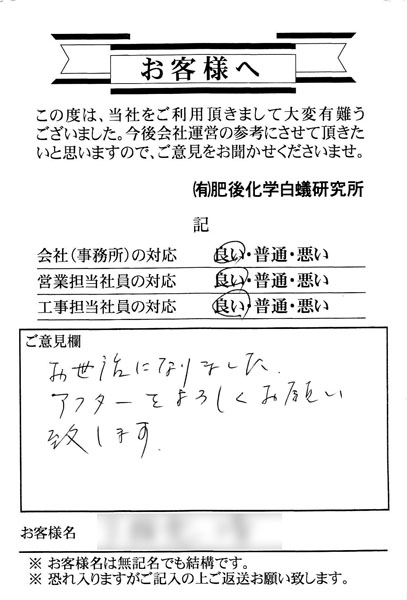 お客様へ
この度は、当社をご利用頂きまして大変有難う
ございました。今後会社運営の参考にさせて頂きた
いと思いますので、ご意見をお聞かせくださいませ。
㈲肥後化学白蟻研究所
記
会社（事務所）の対応 良い・普通・悪い
営業担当社員の対応 良い・普通・悪い
工事担当社員の対応 良い・普通・悪い
ご意見欄
お世話になりました。
アフターをよろしくお願い
致します。
お客様名
※ お客様名は無記名でも結構です。
※ 恐れ入りますがご記入の上ご返送お願い致します。